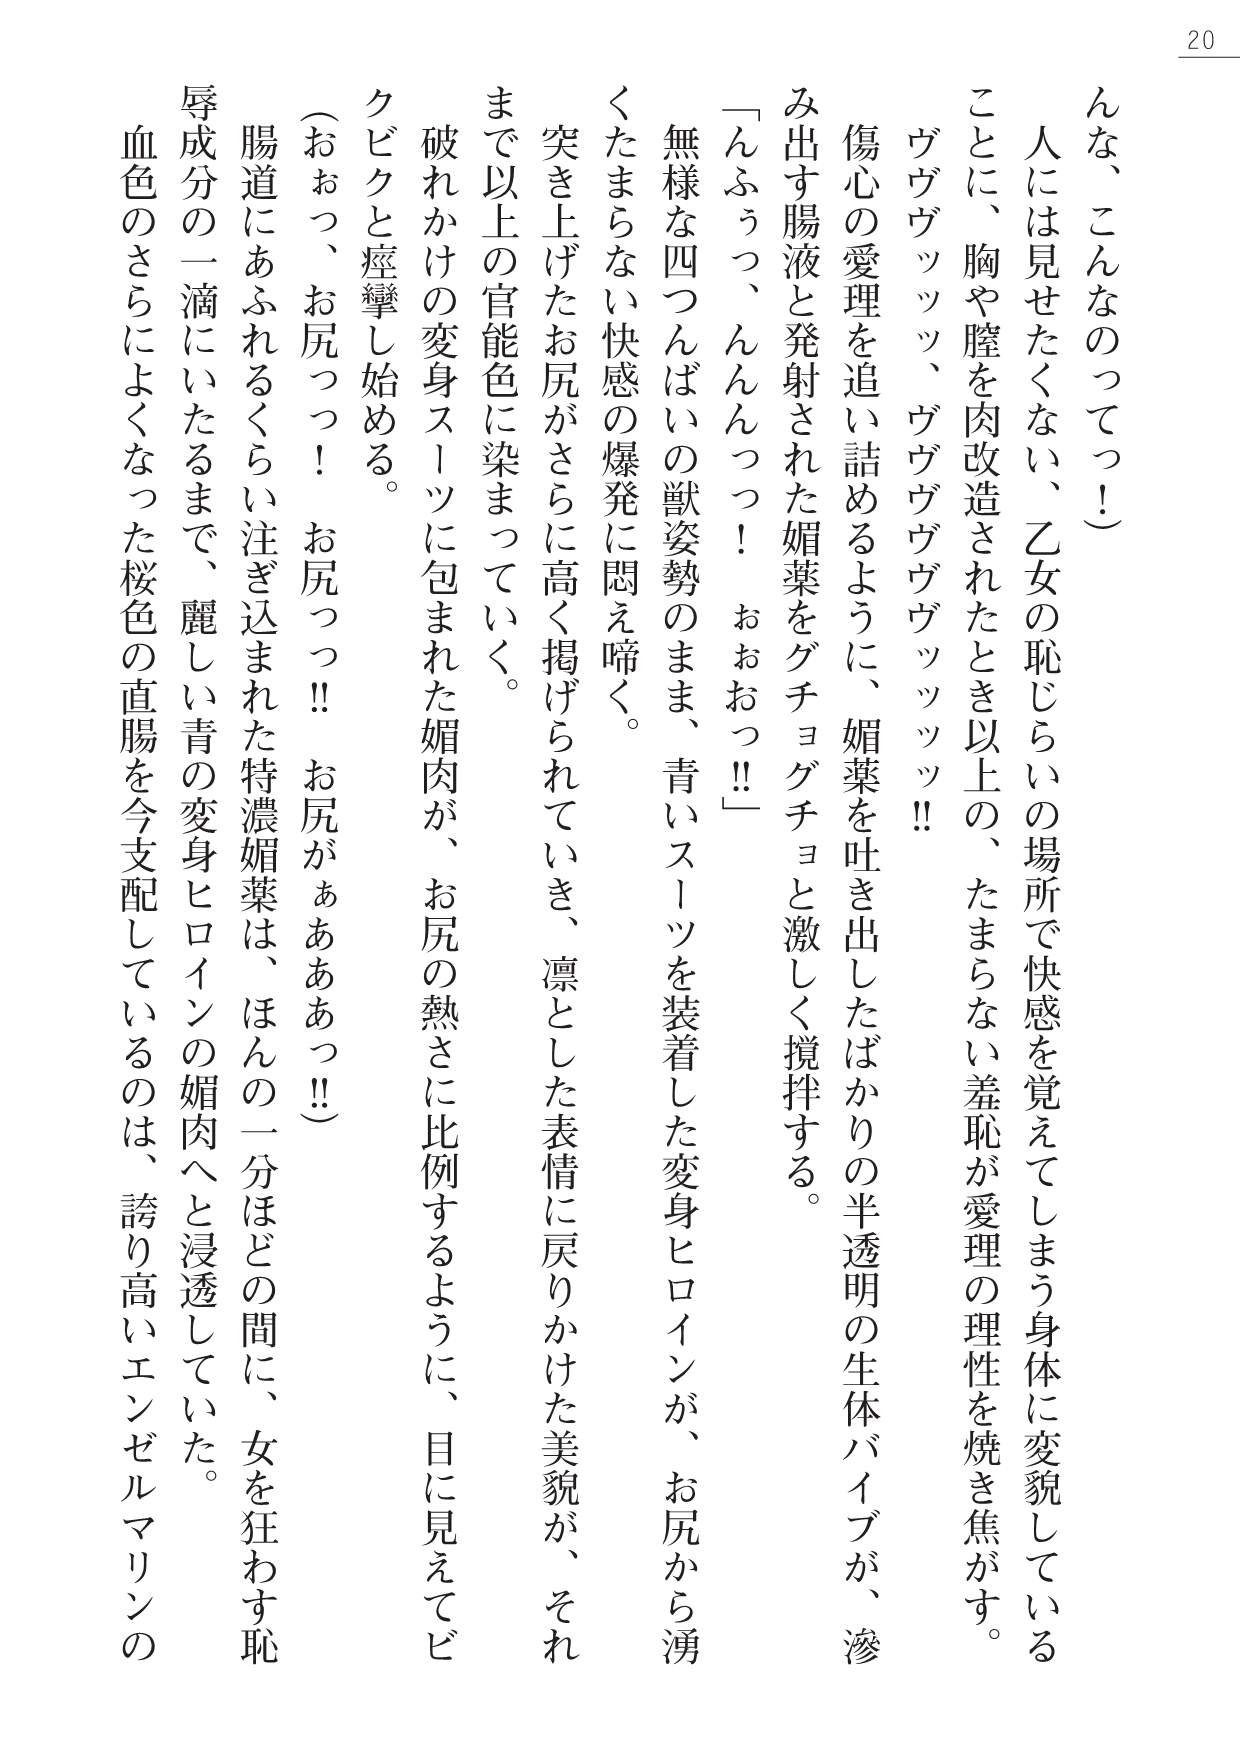 20
んな、こんなのってっ！）
　人には見せたくない、乙女の恥じらいの場所で快感を覚えてしまう身体に変貌している
ことに、胸や膣を肉改造されたとき以上の、たまらない羞恥が愛理の理性を焼き焦がす。
　ヴヴヴッッッ、ヴヴヴヴヴヴッッッッ!!
　傷心の愛理を追い詰めるように、媚薬を吐き出したばかりの半透明の生体バイブが、滲
み出す腸液と発射された媚薬をグチョグチョと激しく撹拌する。
「んふぅっ、んんんっっ！　ぉぉおっ!!」
　無様な四つんばいの獣姿勢のまま、青いスーツを装着した変身ヒロインが、お尻から湧
くたまらない快感の爆発に悶え啼く。
　突き上げたお尻がさらに高く掲げられていき、凛とした表情に戻りかけた美貌が、それ
まで以上の官能色に染まっていく。
　破れかけの変身スーツに包まれた媚肉が、お尻の熱さに比例するように、目に見えてビ
クビクと痙攣し始める。
（おぉっ、お尻っっ！　お尻っっ!!　お尻がぁあああっ!!）
　腸道にあふれるくらい注ぎ込まれた特濃媚薬は、ほんの一分ほどの間に、女を狂わす恥
辱成分の一滴にいたるまで、麗しい青の変身ヒロインの媚肉へと浸透していた。
　血色のさらによくなった桜色の直腸を今支配しているのは、誇り高いエンゼルマリンの